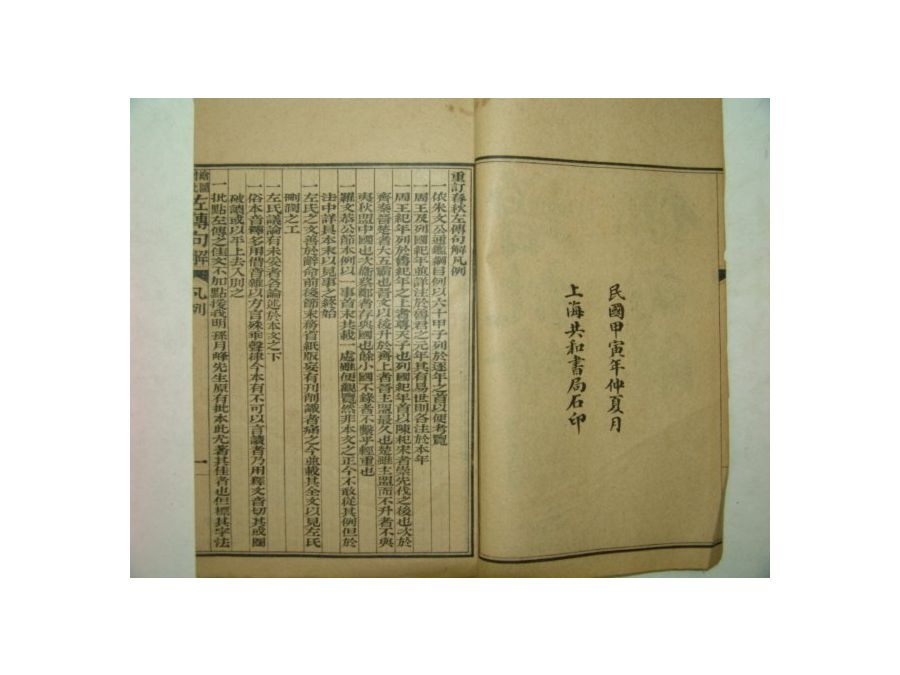 民國甲寅年仲夏月
上海共和書局石印
重訂春秋左傳句解凡例
一依朱文公通鑑綱目例以六十甲子列於逐年之首以便考覽
一周王及列國紀年並詳注於魯君之元年其有易世則各注於本年
一周王紀年列於魯紀年之上者尊天子也列國紀年首以陳杞宋者崇先代之後也次於
齊秦晉楚者大五霸也晉文以後升於齊上者晉主盟最久也楚雖主盟而不升者不與
夷狄盟中國也次衞蔡鄭者存與國也餘小國不錄者不繫乎輕重也
一羅文恭公節本例以一事首末共載一處雖便觀覽然非本文之正今不敢從其例但於
注中詳具本末以見事之終始
一左氏之文善於辭命前後節末務首紙版妄有刊削識者痛之今並載其全文以見左氏
剛潤之工
一左氏議論有未妥者各論述於本文之下
一俗本音釋多用借音雖以方言殊乖聲律今本有不可以言讀者乃用釋文音切其或圈
破讀或以平上去入別之
一批點左傳之佳文不加點掇我明孫月峰先生原有批本此尤著其佳者也但標其字法
左傳句解 凡例 一